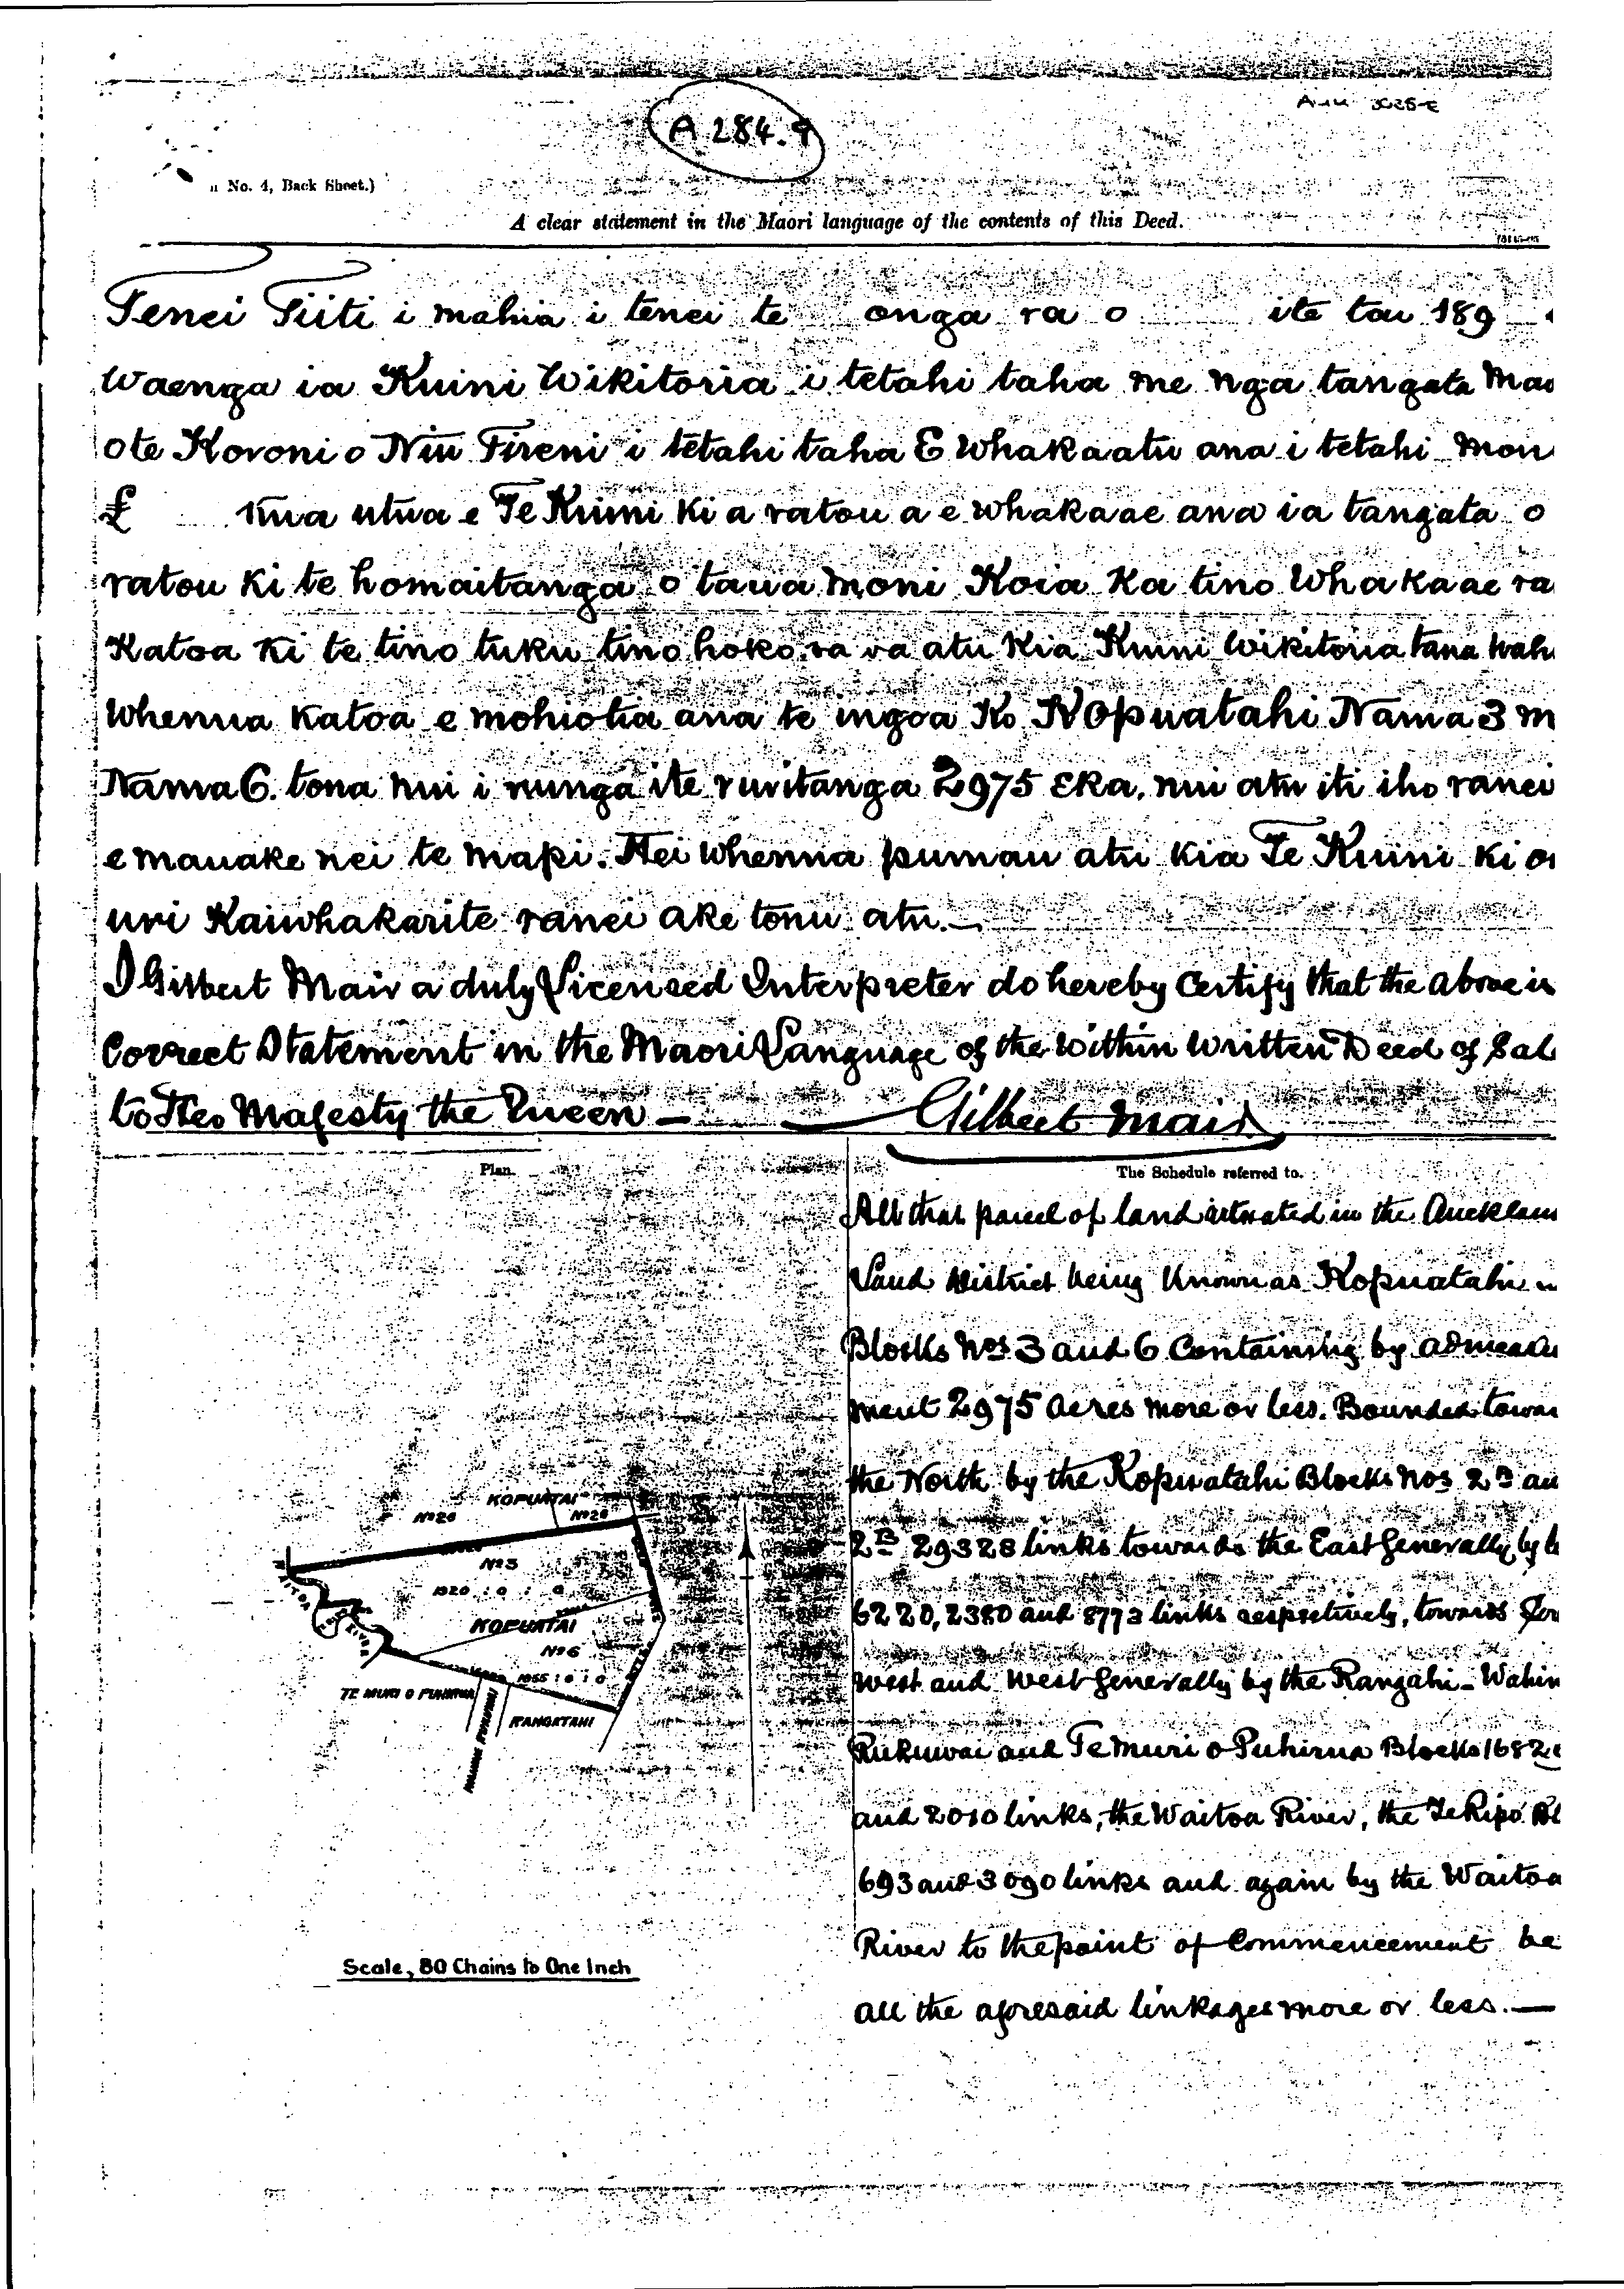 A 284.9
No. 4, Back Sheet.)
A clear statement in the Maori language of the contents of this Deed.
Tenei Tiiti i mahia i tenei te onga ra o ite tau 189
Waenga ia Kuini Wikitoria i tetahi taha me nga tangata Mao
ote Koroni o Niu Tireni i tetahi taha E Whakaatu ana i tetahi mon
£ Kua utua e Te Kuini ki a ratou a e whakaae ana ia tangata o
ratou ki te homaitanga o taua moni Koia Ka tino Whakaae ra
Katoa ki te tino tuku tino hoko ra va atu Kia Kuini Wikitoria taua wah
Whenua Katoa e mohiotia ana te ingoa Ko Kopuatahi Nama 3 m
Nama 6. tona nui i runga ite ruritanga 2975 eka. nui atu iti iho ranei
e mauake nei te mapi. Hei whenua pumau atu kia Te Kuini ki o
uri Kaiwhakarite ranei ake tonu atu.—
I Gilbert Mair a duly Licensed Interpreter do hereby Certify that the above is
Correct Statement in the Maori Language of the within written Deed of Sal
to Her Majesty the Queen — Gilbert Mair
Plan.
The Schedule referred to.
All that parcel of land situated in the Aucklan
Land District being Known as Kopuatahi
Blocks Nos 3 and 6 Containing by admeasu
ment 2975 acres more or less. Bounded towar
the North by the Kopuatahi Blocks Nos 2D an
2B 29328 links towards the East generally by l
6220, 2380 and 8773 links respectively, towards
West and West generally by the Rangahi-Wahin
Rukuwai and Te Muri o Puhirua Blocks 1682
and 2010 links, the Waitoa River, the Te Ripo Bl
693 and 3090 links and again by the Waitoa
River to the point of Commencement be
all the aforesaid linkages more or less.—
KOPUATAI
No 2D
No 2B
No 3
1320 : 0 : 0
KOPUATAI
No 6
1655 : 0 : 0
TE MURI O PUHIRUA
RANGATAHI
Scale, 80 Chains to One Inch